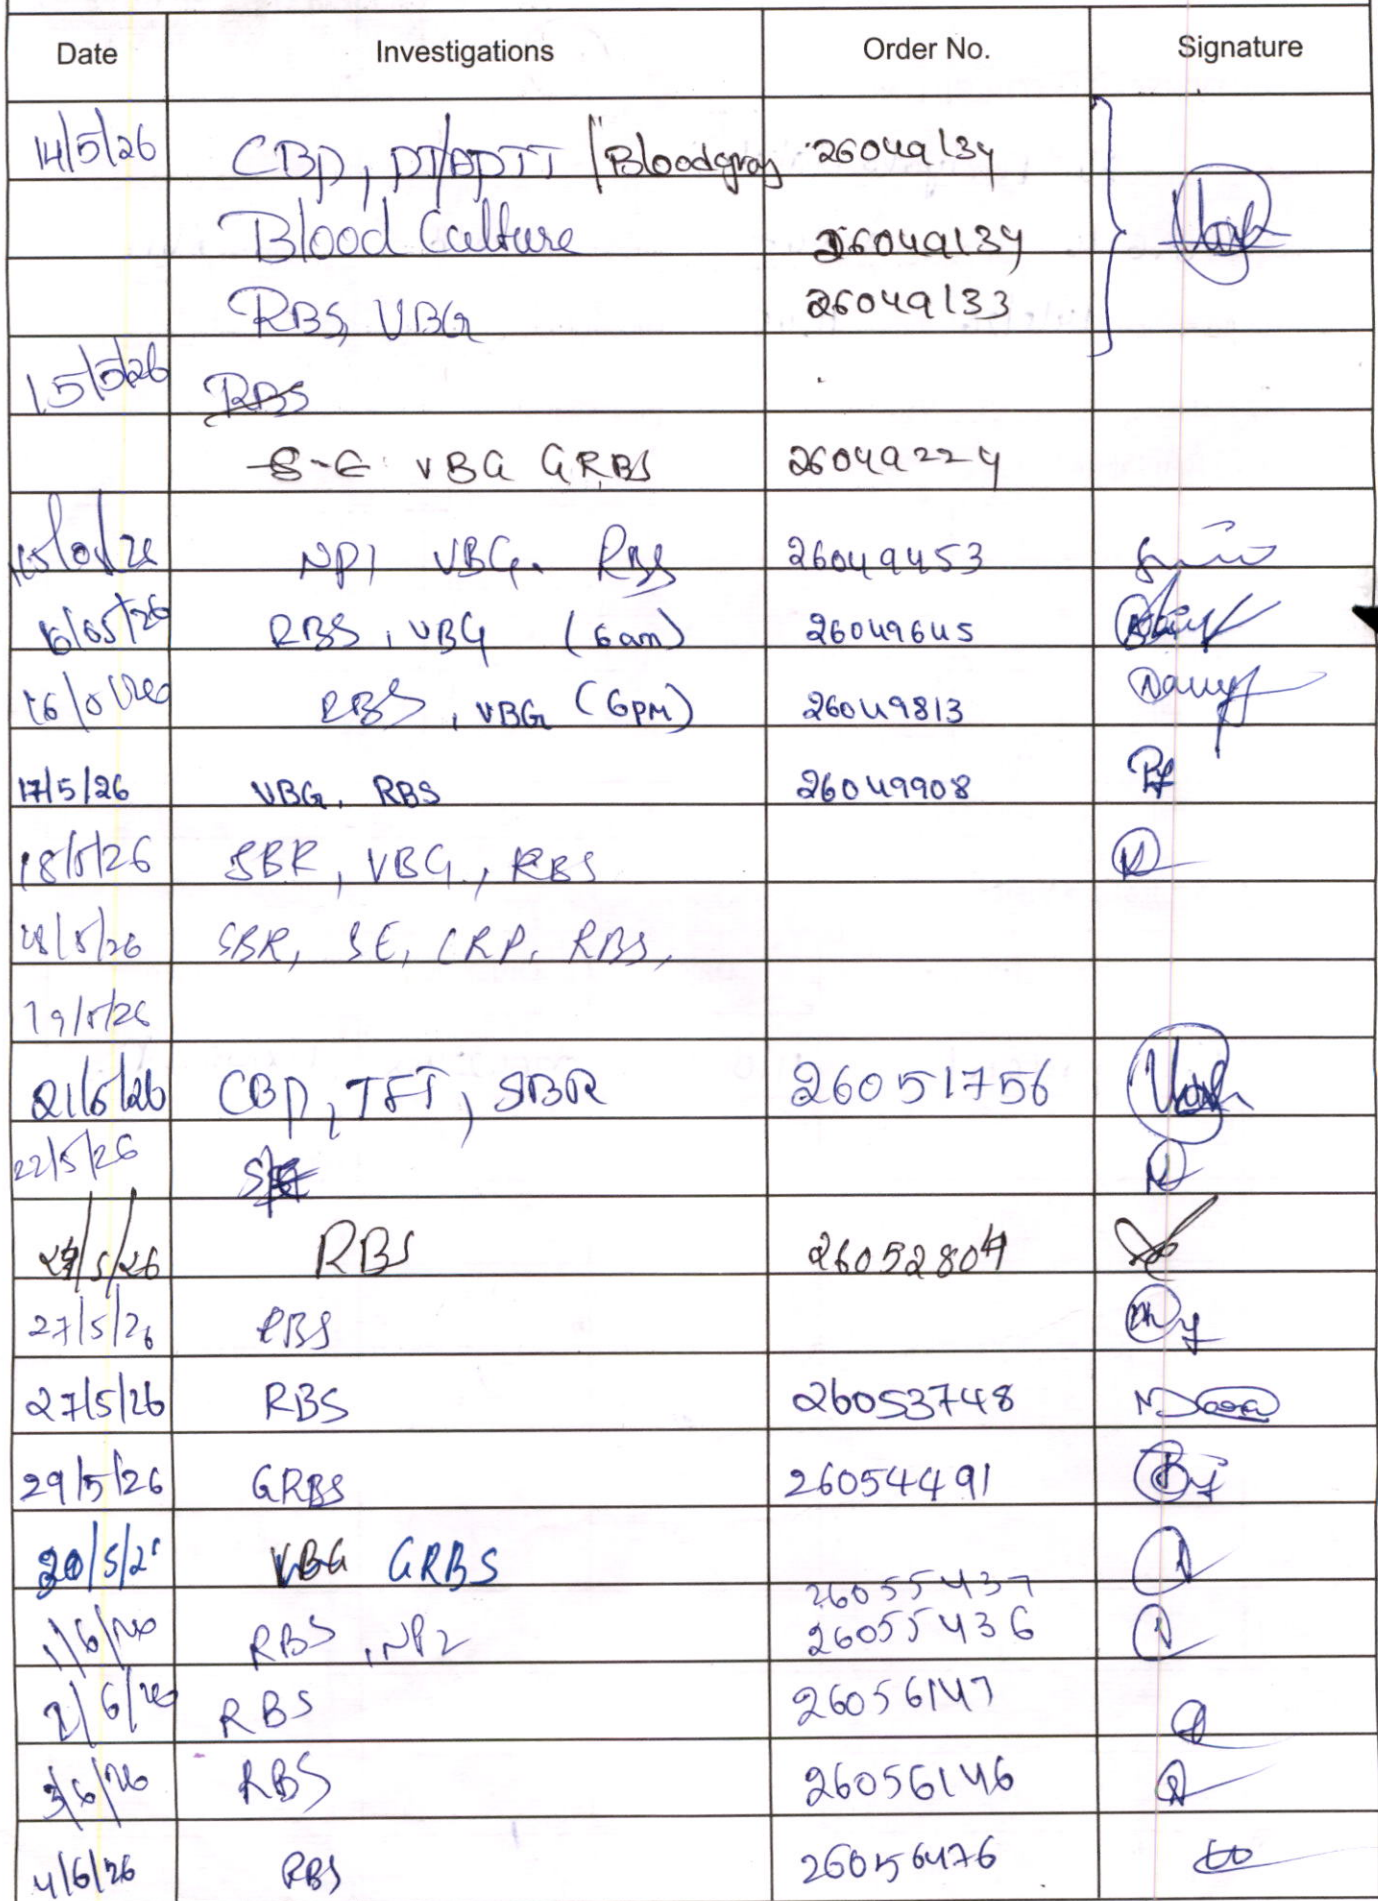 Date Investigations Order No. Signature
14/5/26 CBP, PT/APTT /Bloodgroup 26049134
Blood Culture 26049134
RBS, VBG 26049133
15/5/26 RBS
S-E VBG GRBS 26049224
NP1 VBG. RBS 26049453
16/05/26 RBS, VBG (6am) 26049645
RBS, VBG (6pm) 26049813
17/5/26 VBG, RBS 26049908
18/5/26 SBR, VBG, RBS
18/5/26 SBR, SE, CRP, RBS,
19/5/26
21/5/26 CBP, TFT, SBR 26051756
22/5/26
RBS
27/5/26 RBS
27/5/26 RBS 26053748
29/5/26 GRBS 26054491
VBG GRBS 26055437
1/6/26 RBS, NP2 26055436
2/6/26 RBS 26056147
3/6/26 RBS 26056146
4/6/26 RBS 26056476